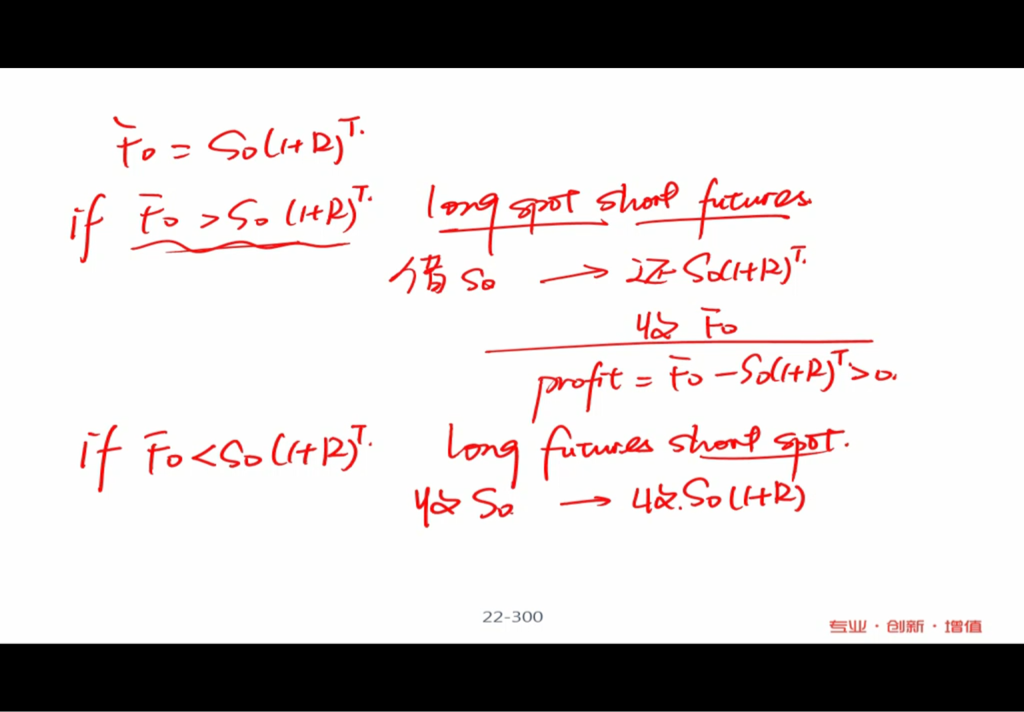 F₀ = S₀(1+R)ᵀ.
if F₀ > S₀ (1+R)ᵀ. long spot short futures.
借 S₀ → 还 S₀(1+R)ᵀ.
收 F₀
profit = F₀ - S₀(1+R)ᵀ > 0.
if F₀ < S₀ (1+R)ᵀ. long futures short spot.
收 S₀. → 收. S₀ (1+R)
22-300
专业·创新·增值